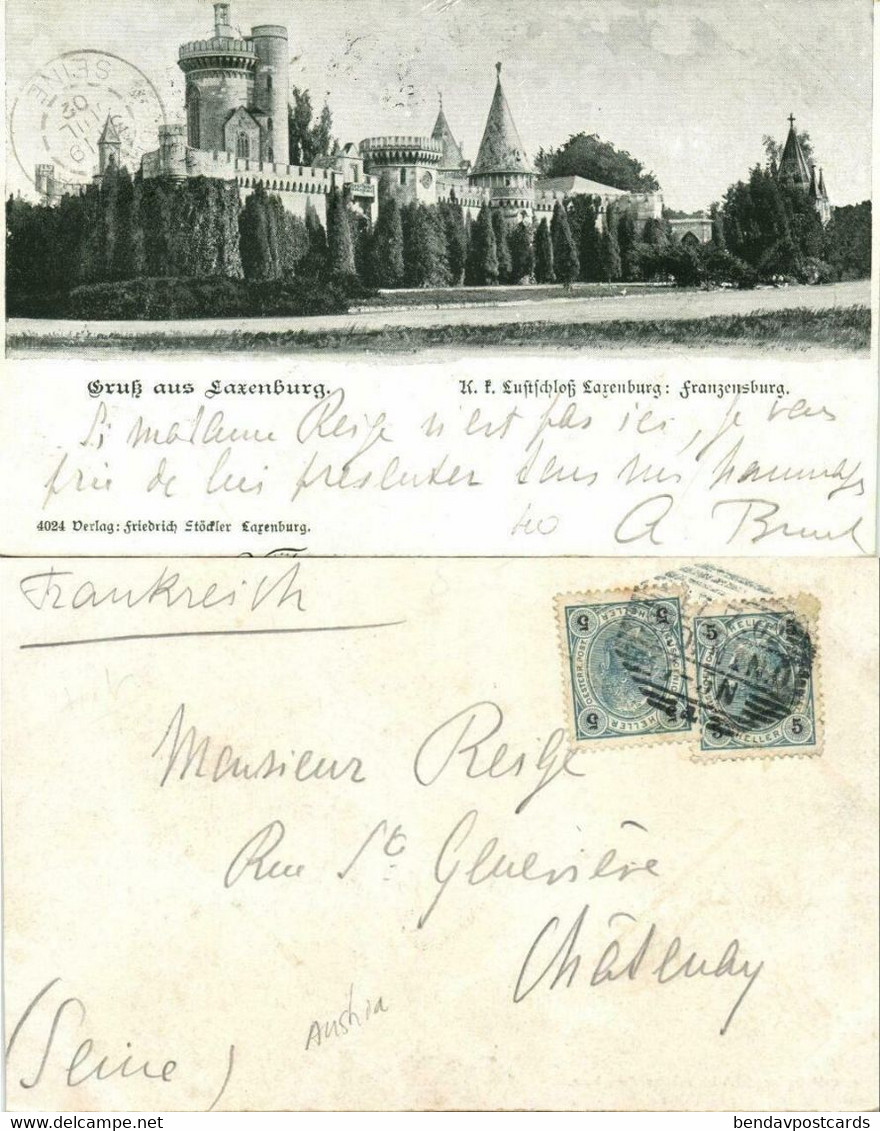 SEINE
19
JUIL
02
Gruß aus Laxenburg.
K. k. Lustschloß Laxenburg: Franzensburg.
Si madame Reige n'est pas ici, je vous
prie de lui présenter tous mes hommages
A
4024 Verlag: Friedrich Stöckler Laxenburg.
Frankreich
5 5
OESTERR. POST
HELLER
5 5
5 5
HELLER
5 5
Monsieur Reige
Rue Ste Geneviève
Châtenay
(Seine)
Austria
bendavpostcards